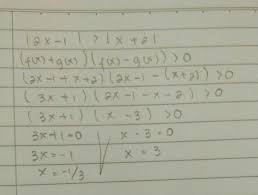 |2x-1| > |x+2|
(f(x)+g(x)) (f(x)-g(x)) > 0
(2x-1+x+2) (2x-1-(x+2)) > 0
(3x+1) (2x-1-x-2) > 0
(3x+1) (x-3) > 0
3x+1=0 x-3=0
3x=-1 x=3
x=-1/3